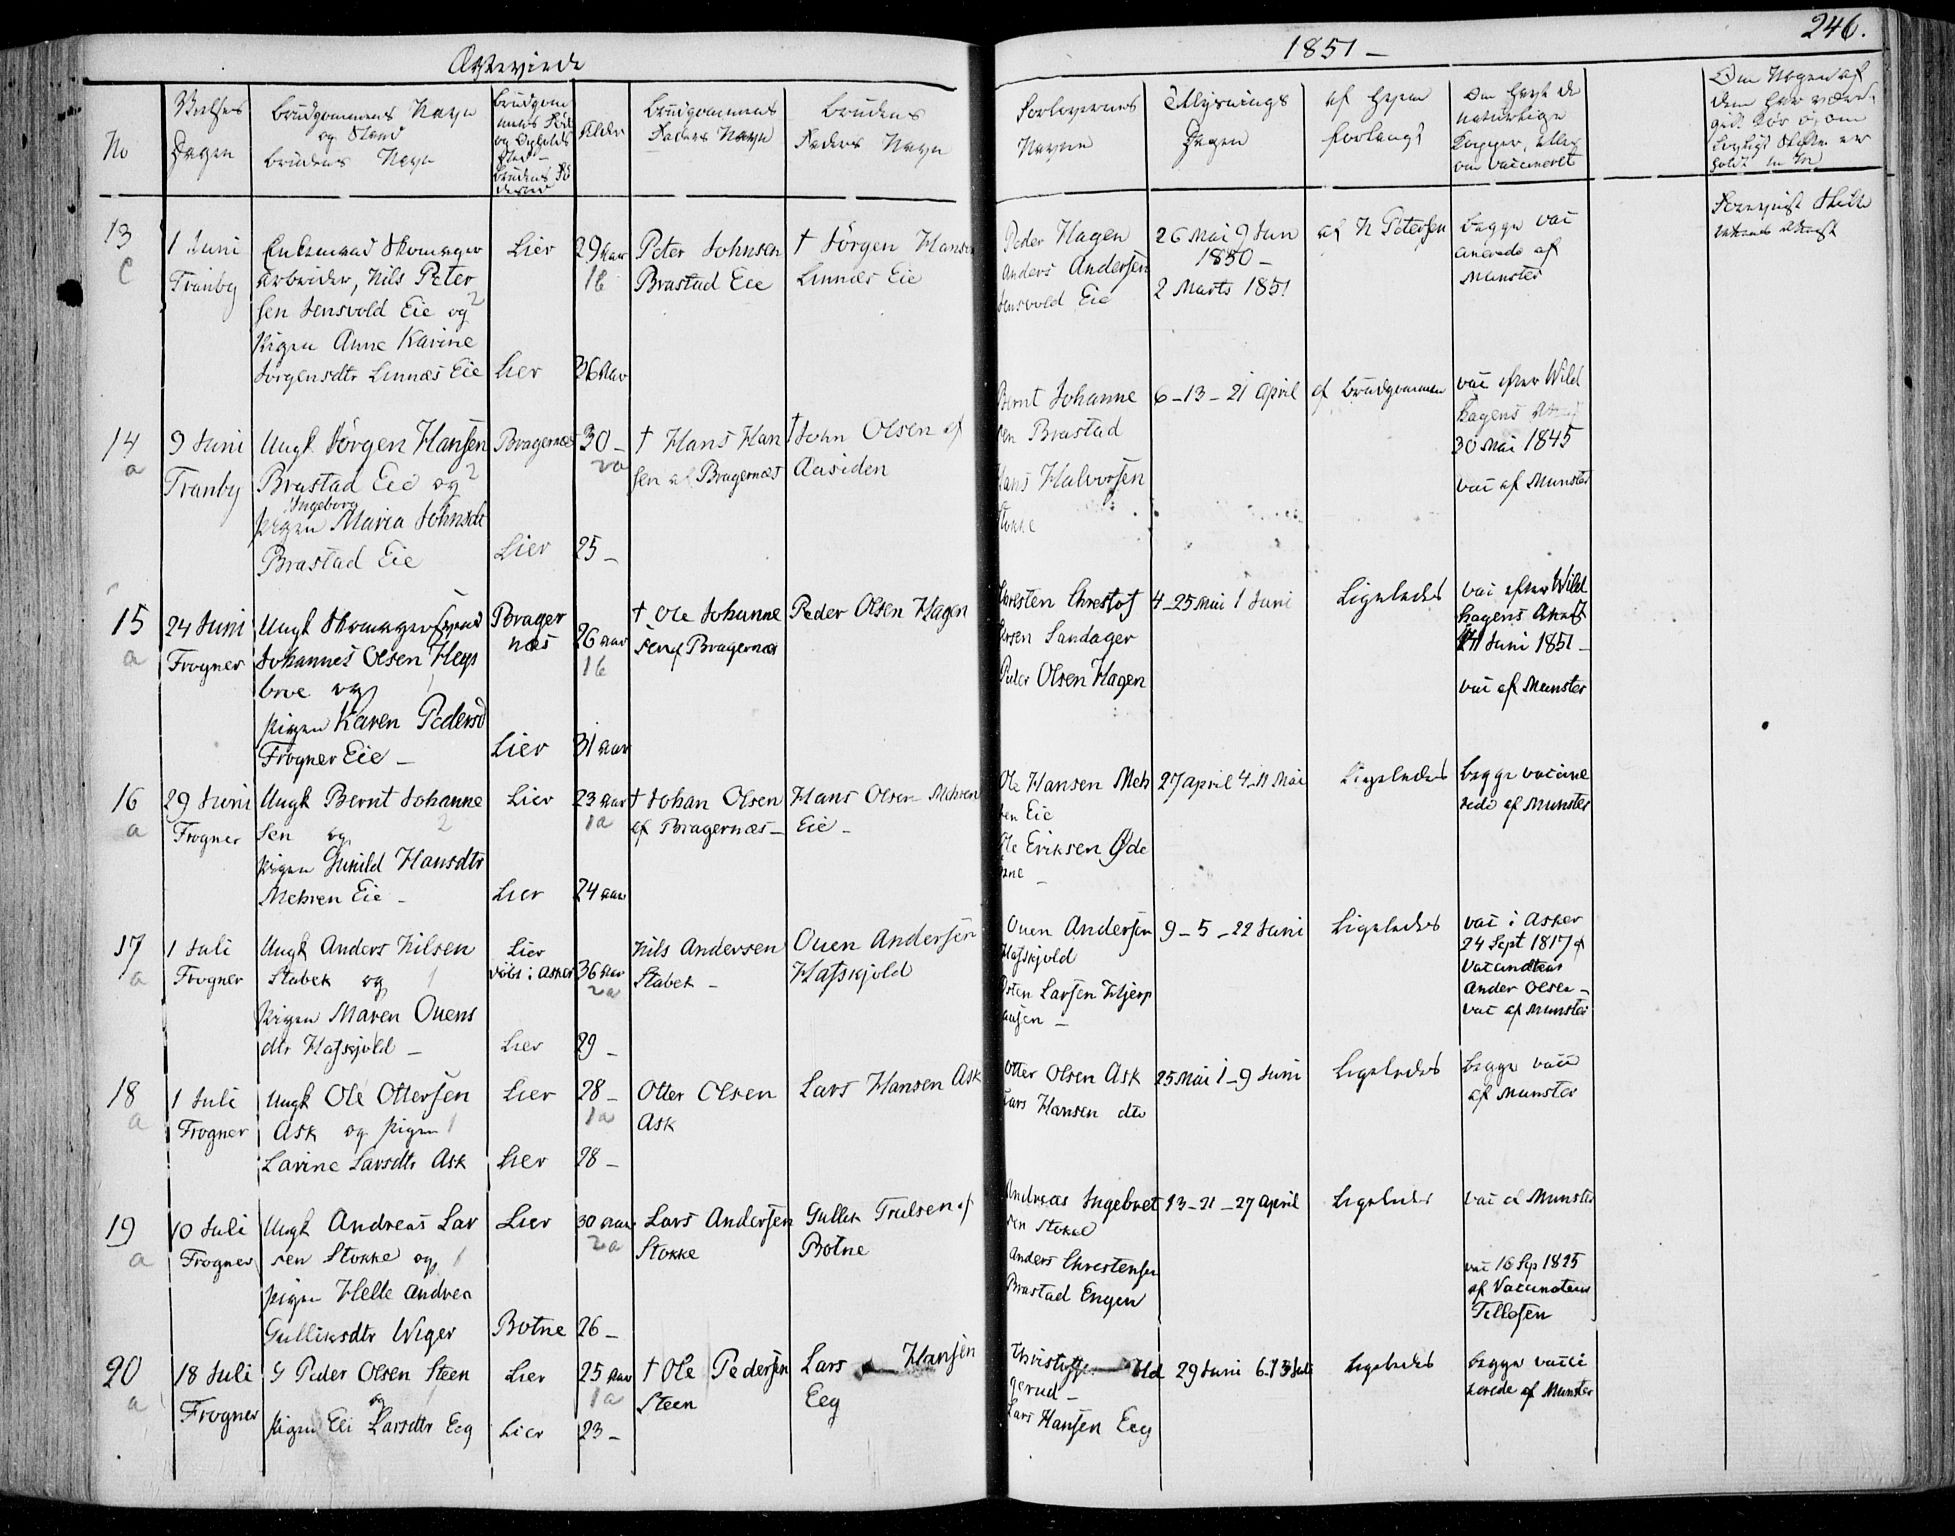 Ægteviede
1851 -
246.
No
Vielses
Dagen
Brudgommens Navn
og Stand
Brudens Navn
Alder
Brudgommens
Faders Navn
Brudens
Faders Navn
Forlovernes
Navne
Tillysnings
Dagen
af Hvem
forlangt
Om havt de
naturlige
Kopper, eller
om vaccineret
13
c
1 Juni
Tranby
Enkemand Skomager
Arbeider, Nils Peter
sen Jensvold Eie og
Pigen Anne Karine
Jørgensdtr Linnæs Eie
Lier
Lier
29 Aar
1b
26 Aar
Peter Johnsen
Brastad Eie
† Jørgen Hansen
Linnæs Eie
Peder Hagen
Anders Andersen
Jensvold Eie
26 Mai 9 Jun
1850 -
2 Marts 1851
af N Petersen
begge vac
cinerede af
Munster
14
a
9 Juni
Tranby
Ungk Jørgen Hansen
Brastad Eie og
Ingeborg
Pigen Maria Johnsdt
Brastad Eie
Bragernæs
Lier
30 -
2a
25 -
† Hans Han
sen af Bragernæs
† John Olsen af
Aasiden
Bernt Johanne
sen Brastad
Hans Halvorsen
Stokke
6 - 13 - 21 April
af Brudgommen
vac efter Wild
hagens Attest
30 Mai 1845
vac af Munster
15
a
24 Juni
Frogner
Ungk Skomagersvend
Johannes Olsen Hegs
broe og
Pigen Karen Pedersd
Frogner Eie -
Brager
næs
Lier
26 Aar
1b
31 Aar
† Ole Johanne
sen af Bragernæs
Peder Olsen Hagen
Chresten Chrestof
fersen Landager
Peder Olsen Hagen
4 - 25 Mai 1 Juni
Ligeledes
vac efter Wild
hagens Attest
Juni 1851 -
vac af Munster
16
a
29 Juni
Frogner
Ungk Bernt Johanne
sen og
Pigen Gunild Hansdtr
Mehren Eie -
Lier
Lier
23 Aar
1a
24 Aar
† Johan Olsen
af Bragernæs -
Hans Olsen Mehren
Eie -
Ole Hansen Meh
ren Eie
Ole Eriksen Øde
27 April 4 - 11 Mai
Ligeledes
begge vaccine
rede af Munster
17
a
1 Juli
Frogner
Ungk Anders Nilsen
Stabek og
Pigen Maren Ouens
dtr Hafskjold -
Lier
døbt i Asker
Lier
36 Aar
2a
29 -
Nils Andersen
Stabek -
Ouen Andersen
Hafskjold
Ouen Andersen
Hafskjold
Osten Larsen Hjerp
aasen -
9 - 5 - 22 Juni
Ligeledes
vac i Asker
24 Sept 1817 af
Vaccinateur
Ander Olsen -
vac af Munster
18
a
1 Juli
Frogner
Ungk Ole Ottersen
Ask og Pigen
Larine Larsdtr Ask
Lier
Lier
28 -
1a
28 -
Otter Olsen
Ask
Lars Hansen Ask
Otter Olsen Ask
Lars Hansen dto
25 Mai 1 - 9 Juni
Ligeledes
begge vacc
af Munster
19
a
10 Juli
Frogner
Ungk Andreas Lar
sen Stokke og
Pigen Helle Andrea
Gulliksdtr Wiger
Lier
Botne
30 Aar
2a
26 -
Lars Andersen
Stokke
Gullik Trulsen af
Botne
Andreas Ingebret
sen Stokke
Anders Christensen
Brastad Engen
13 - 21 - 27 April
Ligeledes
vac af Munster
vac 16 Sep 1825
af Vaccinateur
Tellefsen
20
a
18 Juli
Frogner
Peder Olsen Steen
og
Pigen Eli Larsdtr Eeg
Lier
Lier
25 Aar
1a
23 -
† Ole Pedersen
Steen
Lars Hansen
Eeg
gerud -
Lars Hansen Eeg
29 Juni 6. 13 Juli
Ligeledes
begge vacci
nerede af Munster